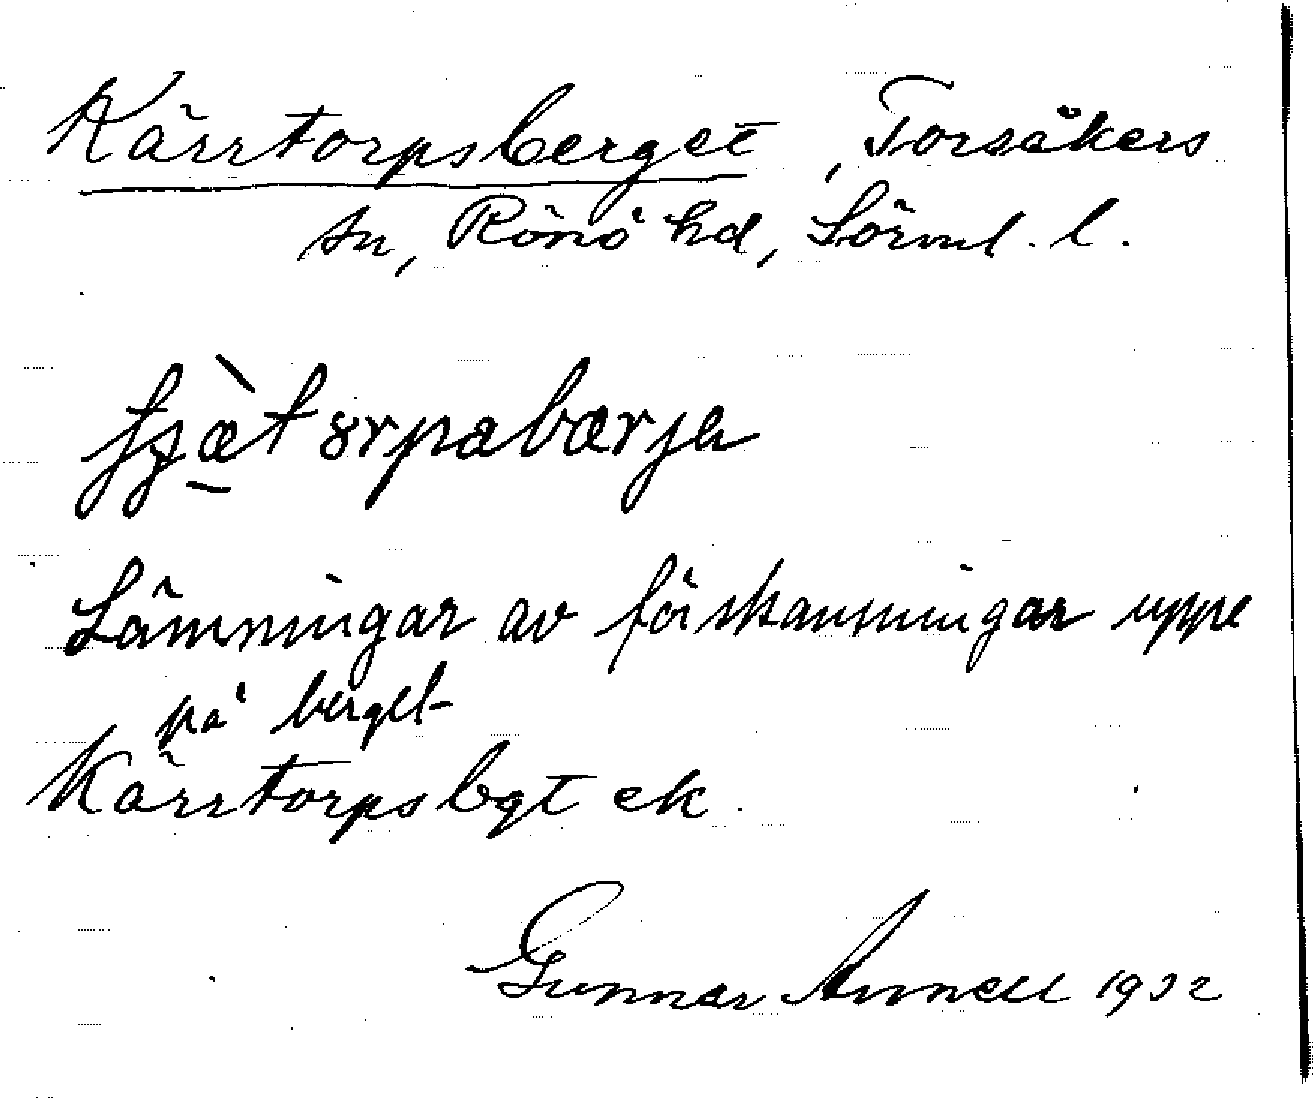 Kärrtorpsberget, Torsåkers
sn, Rönö hd, Sörml. l.
Lämningar av förskansningar uppe
på berget
Kärrtorpsbgt ek.
Gunnar Annell 1932